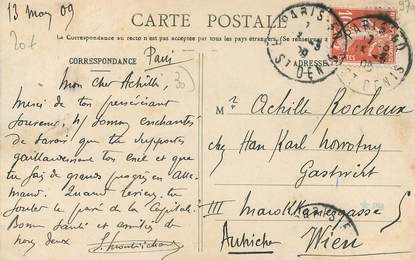 13 may 09
CARTE POSTALE
La Correspondance au recto n'est pas acceptée par tous les pays étrangers. (Se renseigner
CORRESPONDANCE
ADRESSE
20f
20
Paris
Mon cher Achille,
Merci de ton
souvenir. ns sommes enchantés
de savoir que tu supportes
gaillardement ton exil et que
tu fais de grands progrès en alle-
mand. Quand reviens-tu
fouler le pavé de la Capitale?
Bonne santé et amitiés de
nous deux
Mr Achille Rocheux
chez Han Karl
Gastwirt
III Marokkanergasse
Autriche Wien
PARIS
ST DENIS